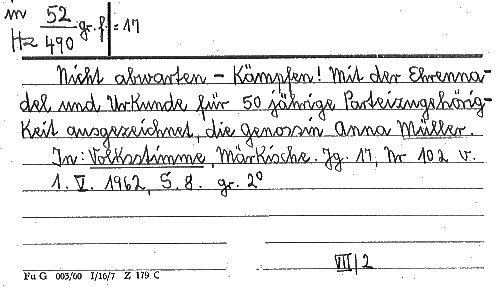 in 52 gr. f. = 17
Hz 490
Nicht abwarten - Kämpfen! Mit der Ehrenna-
del und Urkunde für 50 jährige Parteizugehörig-
keit ausgezeichnet, die Genossin Anna Müller.
In: Volksstimme, Märkische. Jg. 17, Nr 102 v.
1. V. 1962, S. 8. gr. 2°
VII/2
Fu G 003/60 I/16/7 Z 179 C